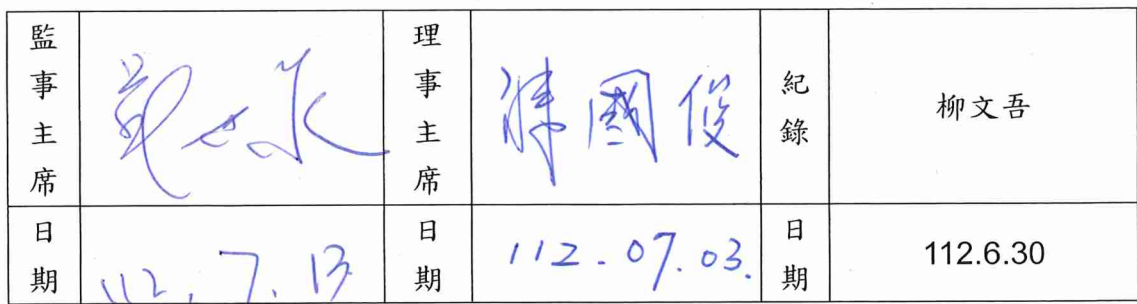 監事主席 理事主席 國俊 紀錄 柳文吾
日期 112. 7. 13 日期 112.07.03. 日期 112.6.30